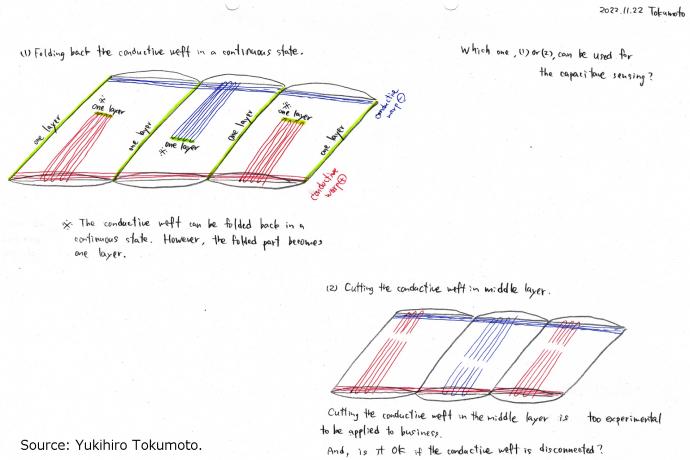 2022.11.22 Tokumoto
(1) Folding back the conductive weft in a continuous state.
Which one, (1) or (2), can be used for
the capacitave sensing?
※
one layer
one layer
one layer
※
one layer
one layer
※
one layer
one layer
conductive
warp ⊖
conductive
warp ⊕
※ The conductive weft can be folded back in a
continuous state. However, the folded part becomes
one layer.
(2) Cutting the conductive weft in middle layer.
Cutting the conductive weft in the middle layer is too experimental
to be applied to business.
And, is it OK if the conductive weft is disconnected?
Source: Yukihiro Tokumoto.